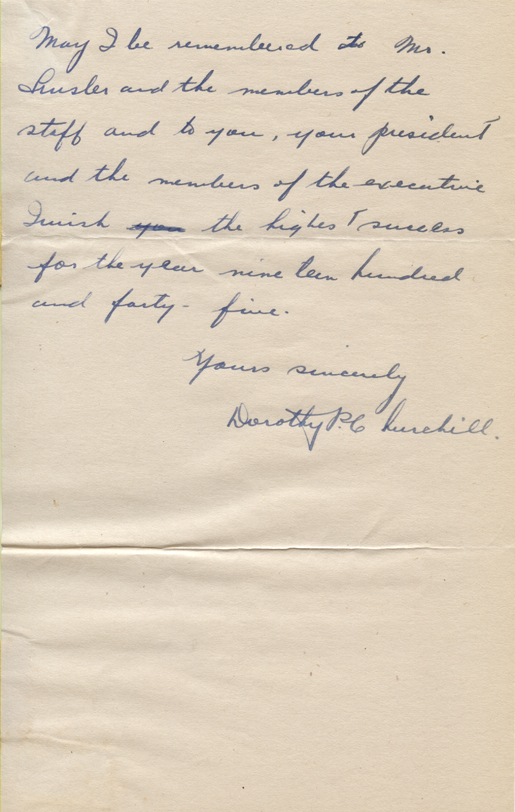 May I be remembered to Mr.
and the members of the
staff and to you, your president
and the members of the executive
I wish you the highest success
for the year nine teen hundred
and forty - five.
Yours sincerely
Dorothy P. Churchill.